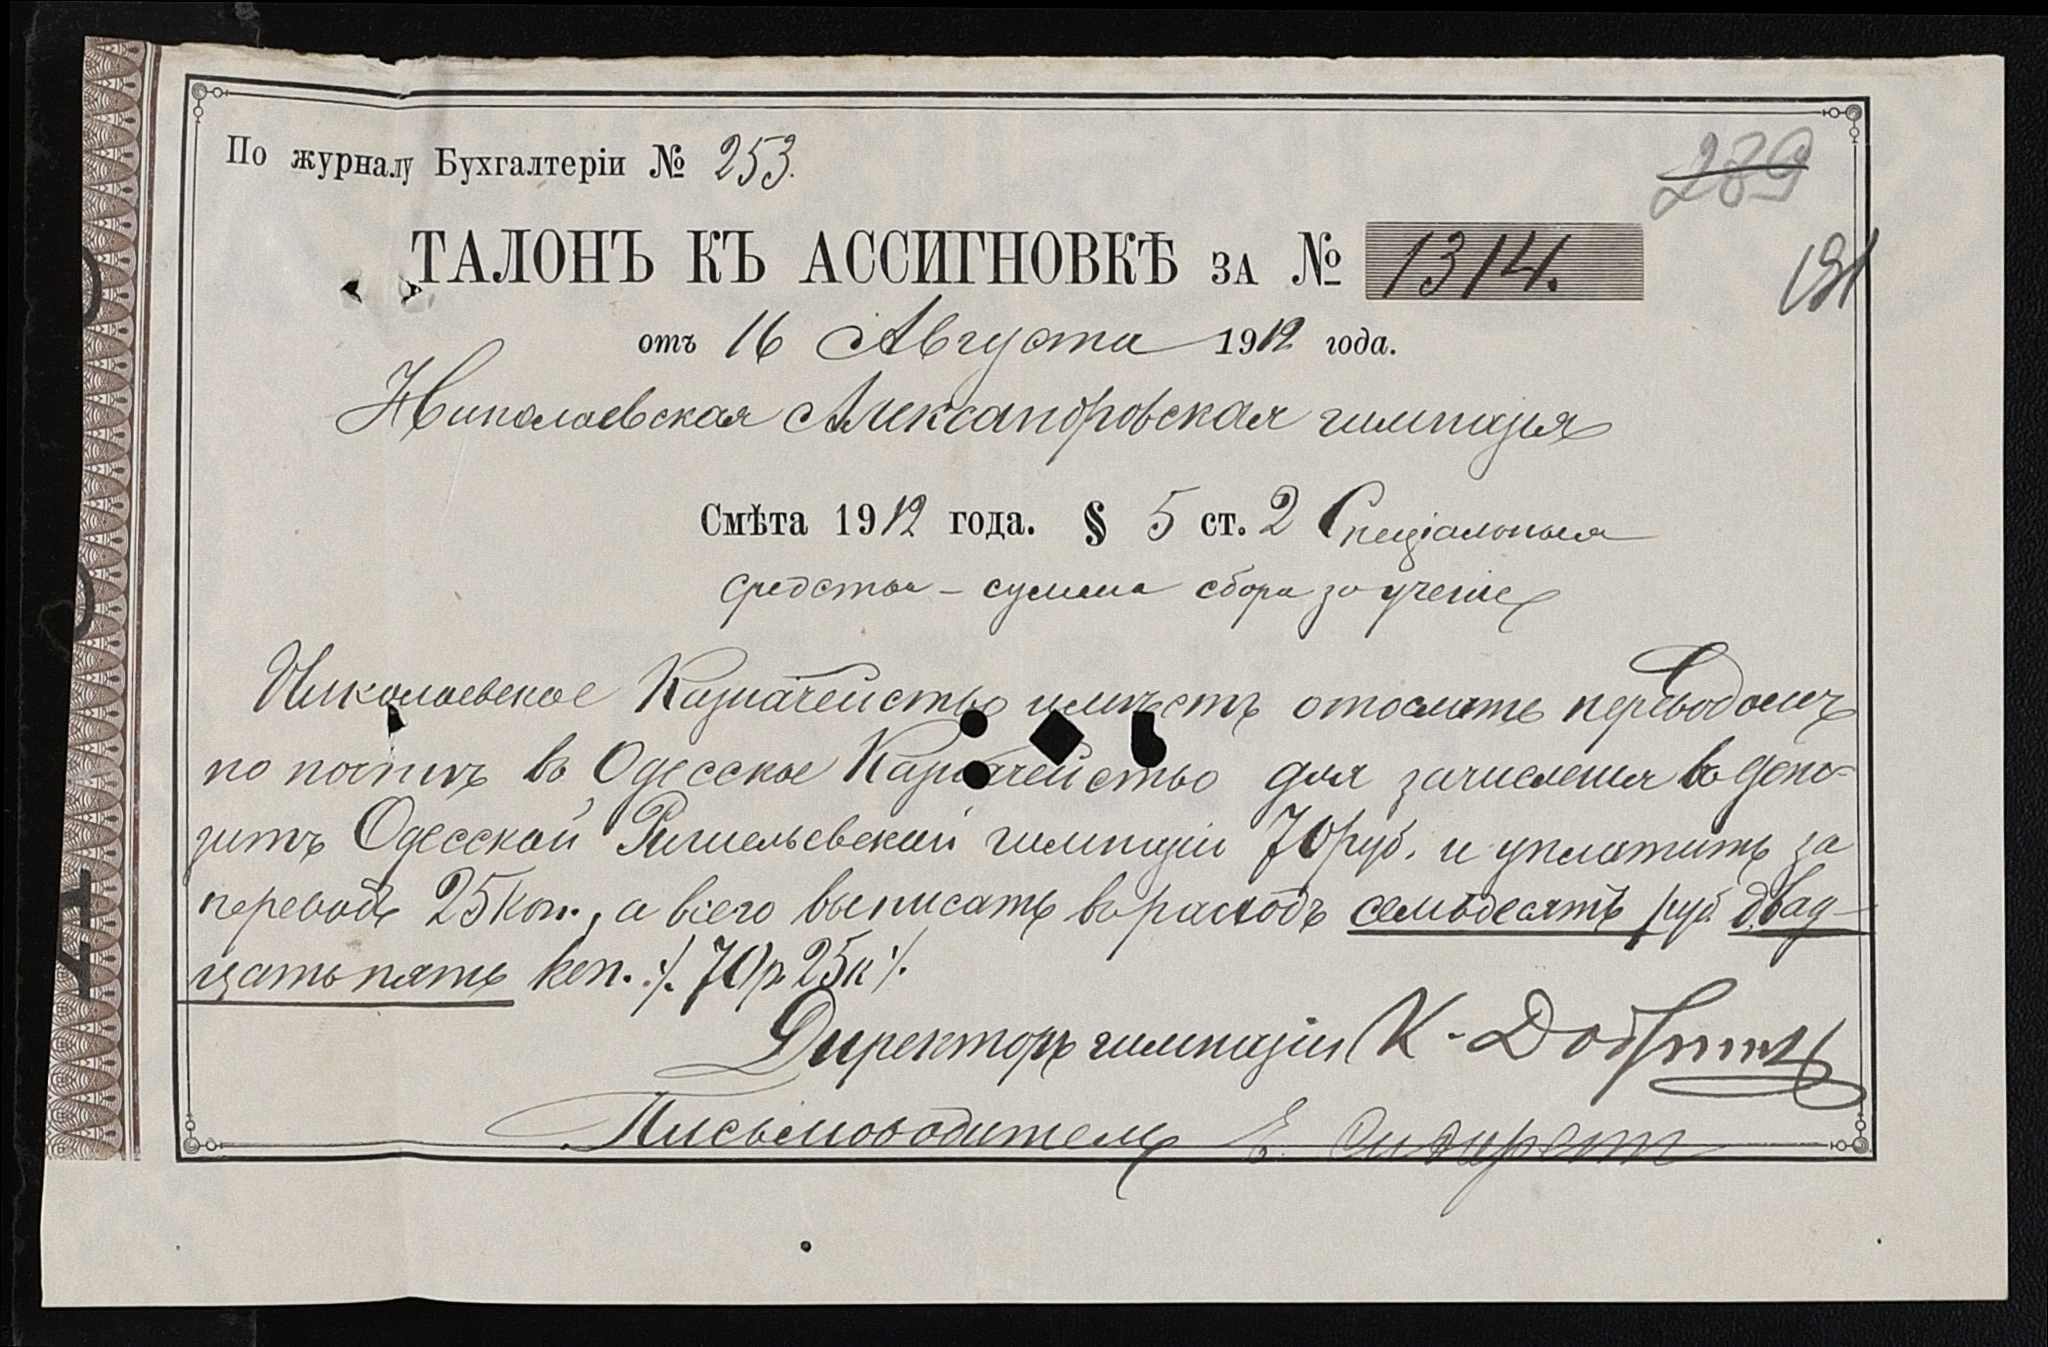 По журналу Бухгалтеріи № 253.
289
ТАЛОНЪ КЪ АССИГНОВКѢ ЗА № 1314.
191
отъ 16 Августа 1912 года.
Николаевская Александровская гимназія
Смѣта 1912 года. § 5 ст. 2 Спеціальныя
средства – сумма сбора за ученіе
Николаевское Казначейство имѣетъ отослать переводомъ
по почтѣ въ Одесское Казначейство для зачисленія въ депо-
зитъ Одесской Ришельевской гимназіи 70 руб. и уплатить за
переводъ 25 коп., а всего выписать въ расходъ семьдесятъ руб. двад-
цать пять коп. ·/. 70 р. 25 к ·/.
Директоръ гимназіи К.
Письмоводитель Е.